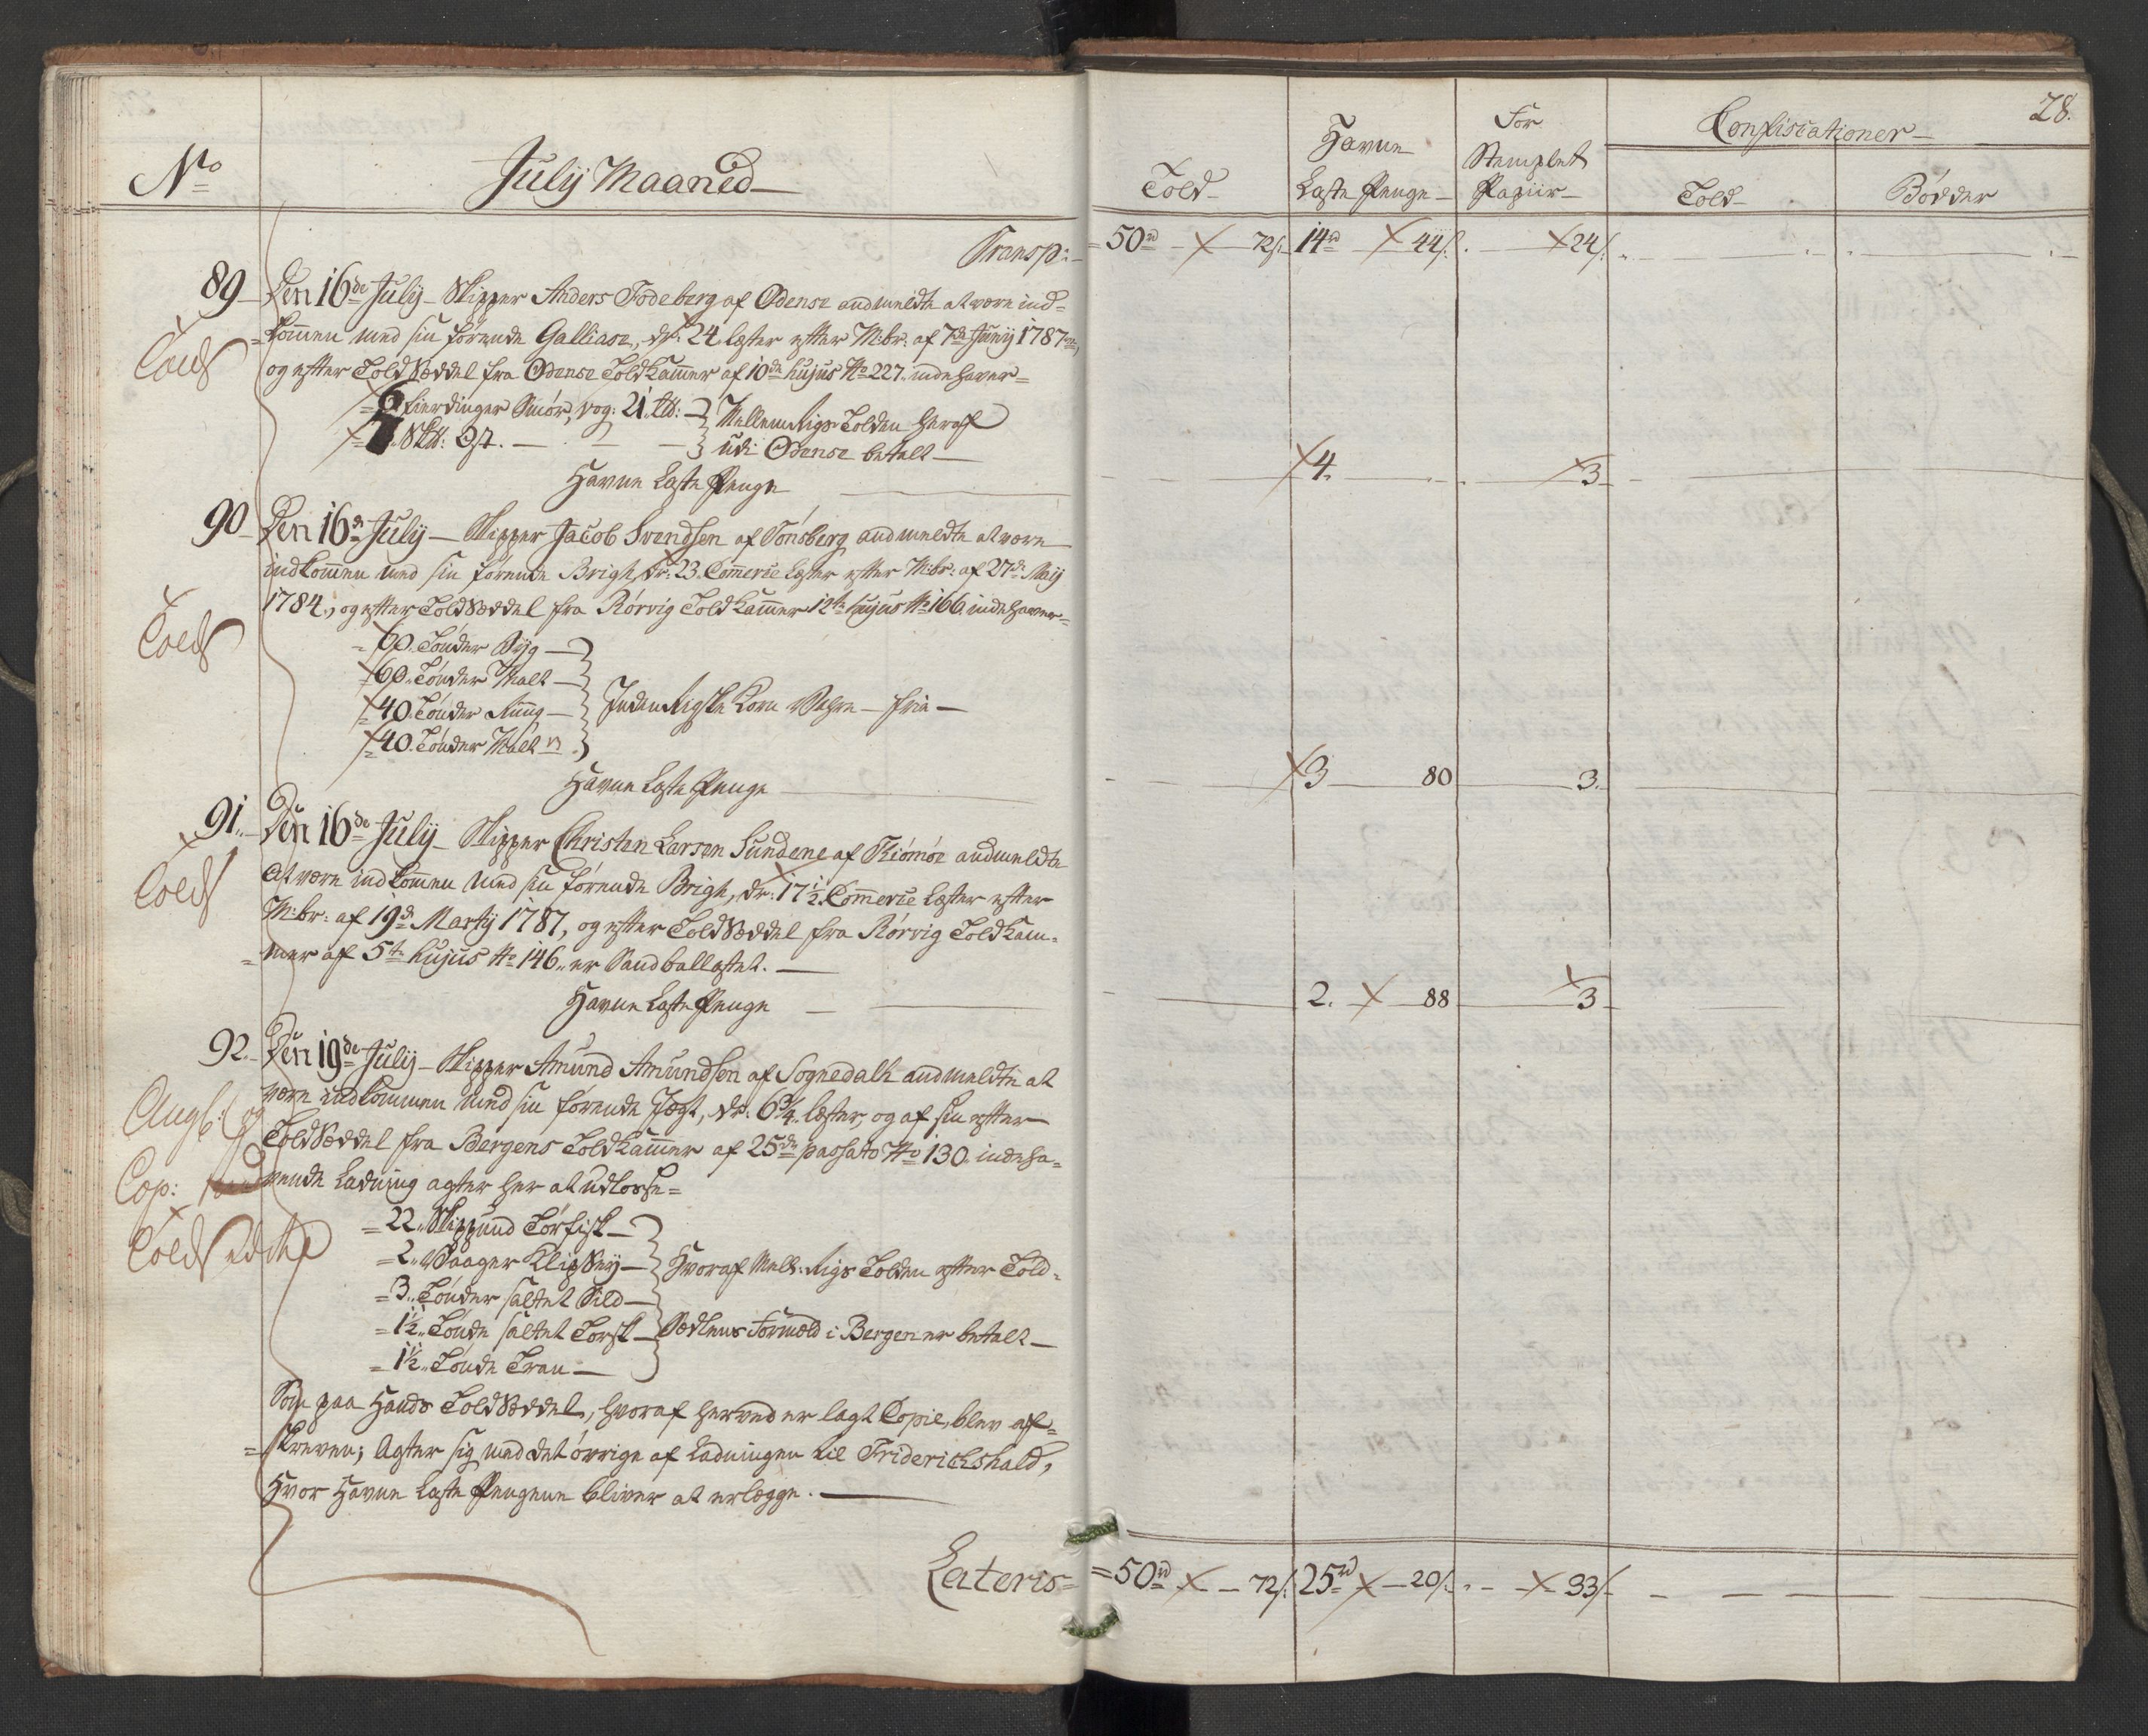 No
July Maaned
Transp:
89 Den 16de July Skipper Anders Fodeberg af Odense andmeldte at være ind-
kommen med sin förende Galliase, dr: 24 læster efter M:br: af 7de Juny 1787,
Coll
og efter ToldSeddel fra Odense ToldKammer af 10de hujus No 227. indehaver
6 fierdinger Smör, vog: 21 L℔: Mellem Rigs Tolden heraf
7 Sk℔: Ost. udi Odense betalt
Havne Laste Penge
90 Den 16de July Skipper Jacob Svendsen af Tönsberg andmeldte at være
indkommen med sin förende Brigh, dr: 23. Commerce Læster efter M:br: af 27de Maij
1784, og efter ToldSeddel fra Rörvig ToldKammer 12te hujus No 166 indehaver
Coll
60. Tönder Byg
60. Tönder Malt
40. Tönder Ruug Inden Rigske Korn Vahre frie
40. Tönder Malt
Havne Laste Penge
91. Den 16de July Skipper Christen Larsen Sundene af Tiömöe andmeldte
at være indkommen med sin förende Brigh, dr: 17 1/2. Commerce Læster efter
Coll
M:br: af 19de Martij 1787, og efter ToldSeddel fra Rörvig ToldKam-
mer af 5te hujus No 146. er Sandballastet.
Havne Laste Penge
92. Den 19de July Skipper Amund Amundsen af Sognedahl andmeldte at
være indkommen med sin förende Jægt, dr. 6 3/4. læster, og af sin efter
ToldSeddel fra Bergens ToldKammer af 25de passato No 130. indeha-
Cop:
vende Ladning agter her at udlosse
22. Skippund Törfisk
Coll
2. Vaager KlipSey Hvoraf Mell: Rigs Tolden efter Told-
3. Tönder saltet Sild
1 1/2. Tönde saltet Torsk Sedlens Formæld i Bergen er betalt
1 1/2. Tönde Tran
Som paa Hands ToldSeddel, hvoraf herved er lagt Copie, blev af-
skreven; Agter sig med det övrige af Ladningen til Friderichshald,
hvor Havne Laste Pengene bliver at erlægge.
Lateris
28.
Told Havne Laste Penge For Stemplet Papiir Confiscationer
Told Bödder
50rd 72s. 14rd 44s. 24s.
4. 3
3 80 3.
2. 88 3
50rd 72s. 25rd 20s. 33s